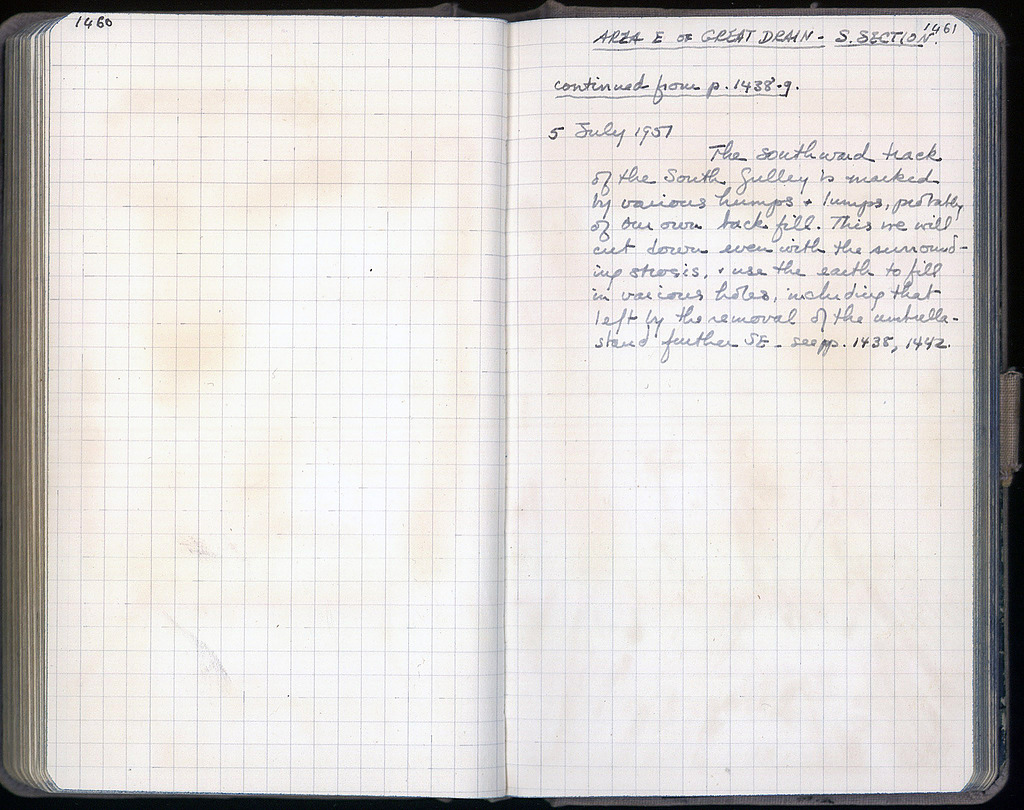 1460
1461
AREA E OF GREAT DRAIN - S. SECTION.
continued from p. 1438-9.
5 July 1957
The southward track
of the South Gulley is marked
by various humps + lumps, probably
of our own back fill. This we will
cut down even with the surround-
ing strosis, + use the earth to fill
in various holes, including that
left by the removal of the umbrella-
stand further SE - see pp. 1438, 1442.